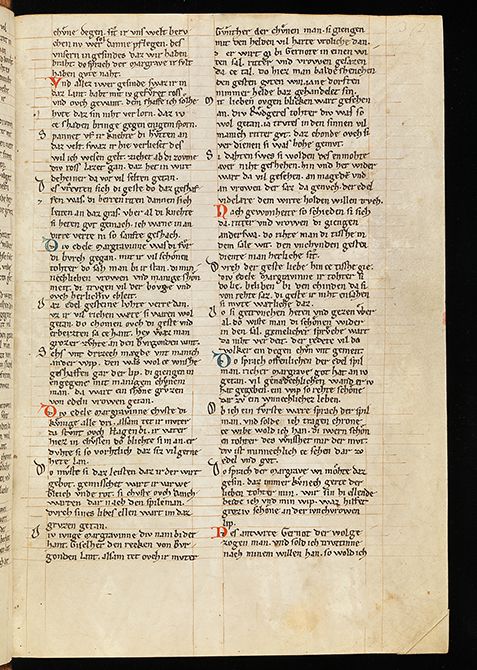 chůne degen. sit ir uns welt ruoch
chen ny wer solᵉ danne pflegen. des
unsern in gesindes daz wir haben
braht do sprach der margrave ir sult
haben gůte naht.
Und allez iwer gesinde swaz ir in
daz lant. habt mit iu gefůret ross
und ouch gewant. dem schaffe ich solhe
hůte daz sin niht verlorn. daz iv
ce schaden bringe gegen eugem sporn.
Spannet uf ir knehte di hůtten an
daz velt. swaz ir hie verlieset des
wil ich wesen gelt. ziehet ab di zoume
div ross lazet gan. daz het in wirt
deheiner da vor vil selten getan.
Des vreuten sich di geste do daz geschaf
fen was. di herren riten dannen sich
leiten an daz gras. uber al di knehte
si heten gůt gemach. ich wæne in an
dirre verte ni so sanfte geschach.
Div edele margravinne was du fůr
di burch gegan. mit ir vil schonen
tohter do sah man bi ir stan. di min
nechlichen vrowen und manige schone
meit. di trugen vil der bouge und
ouch herlichiv chleit.
Daz edel gesteine luhte verre dan.
uz ir vil richen wæte si waren wol
getan. do chomen ouch di geste und
erbeizten sa ce hant. hey waz man
grozer zuhte an den burgonden vant.
Sehs unt drizech magde unt manich
ander wip. den was wol ce wunsche
geschaffen gar der lip. di giengen in
engegene mit manigem chůnem
man. da wart ein schone gruzen
von edeln vrowen getan.
Div edele margravinne chuste di
kunige alle dri. alsam tet ir muter
da stunt ouch Hagen bi. ir vater
hiez in chussen do blichte si in an. er
duhte si so vorhtlich daz siz vil gerne
hete lan.
Do muste si daz leisten daz ir der wirt
gebot. gemischet wart ir varwe
bleich unde rot. si chuste ouch danch
warten. dar nach den spileman.
durch sines libes ellen wart im daz
gruzen getan.
Div iunge margravinne div nam bi der
hant. Giselher den recken von bur
gonden lant. alsam tet ovch ir muter
Gunther der chůnen man. si giengen
mit den helden vil harte vroliche dan.
Der wirt gi bi Gernote in einen wi
ten sal. ritter und vrowen gesazen
da ce tal. do hiez man balde schenchen
den gesten guten win. iane dorften
nimmer helde baz gehandelet sin.
Mit lieben ougen blicken wart gesehen
an. div Rudgers tohter div was so
wol getan. ia trutes in den sinnen vil
manich ritter gut. daz chonde ouch si
ver dienen si was hohe gemut.
Si dahten swes si wolden des enmohte
aver niht geschehen. hin und her wider
wart da vil gesehen. an magede und
an vrowen der saz da genuch. der edel
videlære dem wirte holden willen truch.
Nach gewonheite so schieden si sich
da. ritter und vrowen di giengen
anderswa. do rihte man di tische in
dem sale wit. den unchunden gesten
diente man herliche sit.
Durch der geste liebe hin ce tische gie.
div edele margravinne ir tohter si
do lie. beliben bi den chinden da si
von rehte saz. di geste ir niht ensahen
si mute wærliche daz.
Do si getrunchen heten und gezzen uber
al. do wiste man di schonen wider
in den sal. gæmelicher spruche wart
da niht ver deit. der redete vil do
volker ein degen chůn unt gemeit.
Do sprach offenlichen der edel spil
man. richer margrave got hat an iv
getan. vil genædechlichen wand er iv
hat gegeben. ein wip so rehte schone
dar zu ein wunnechlicher leben.
Ob ich ein furste wære sprach der spil
man. und solde ich tragen chrone.
ce wibe wold ich han. di iwern schon
en tohter des wunschet mir der mut.
div ist minnechlich ce sehen dar zu
edel und gut.
Do sprach der margrave wi mohte daz
gesin. daz immer kunech gerte der
lieben tohter min. wir sin hi ellende
beide ich und min wip. waz hilfet
groziv schone an der iunchvrowen
lip.
Des antwrte Gernot der wolge
zogen man. und sold ich triutinne
nach minem willen han. so wold ich